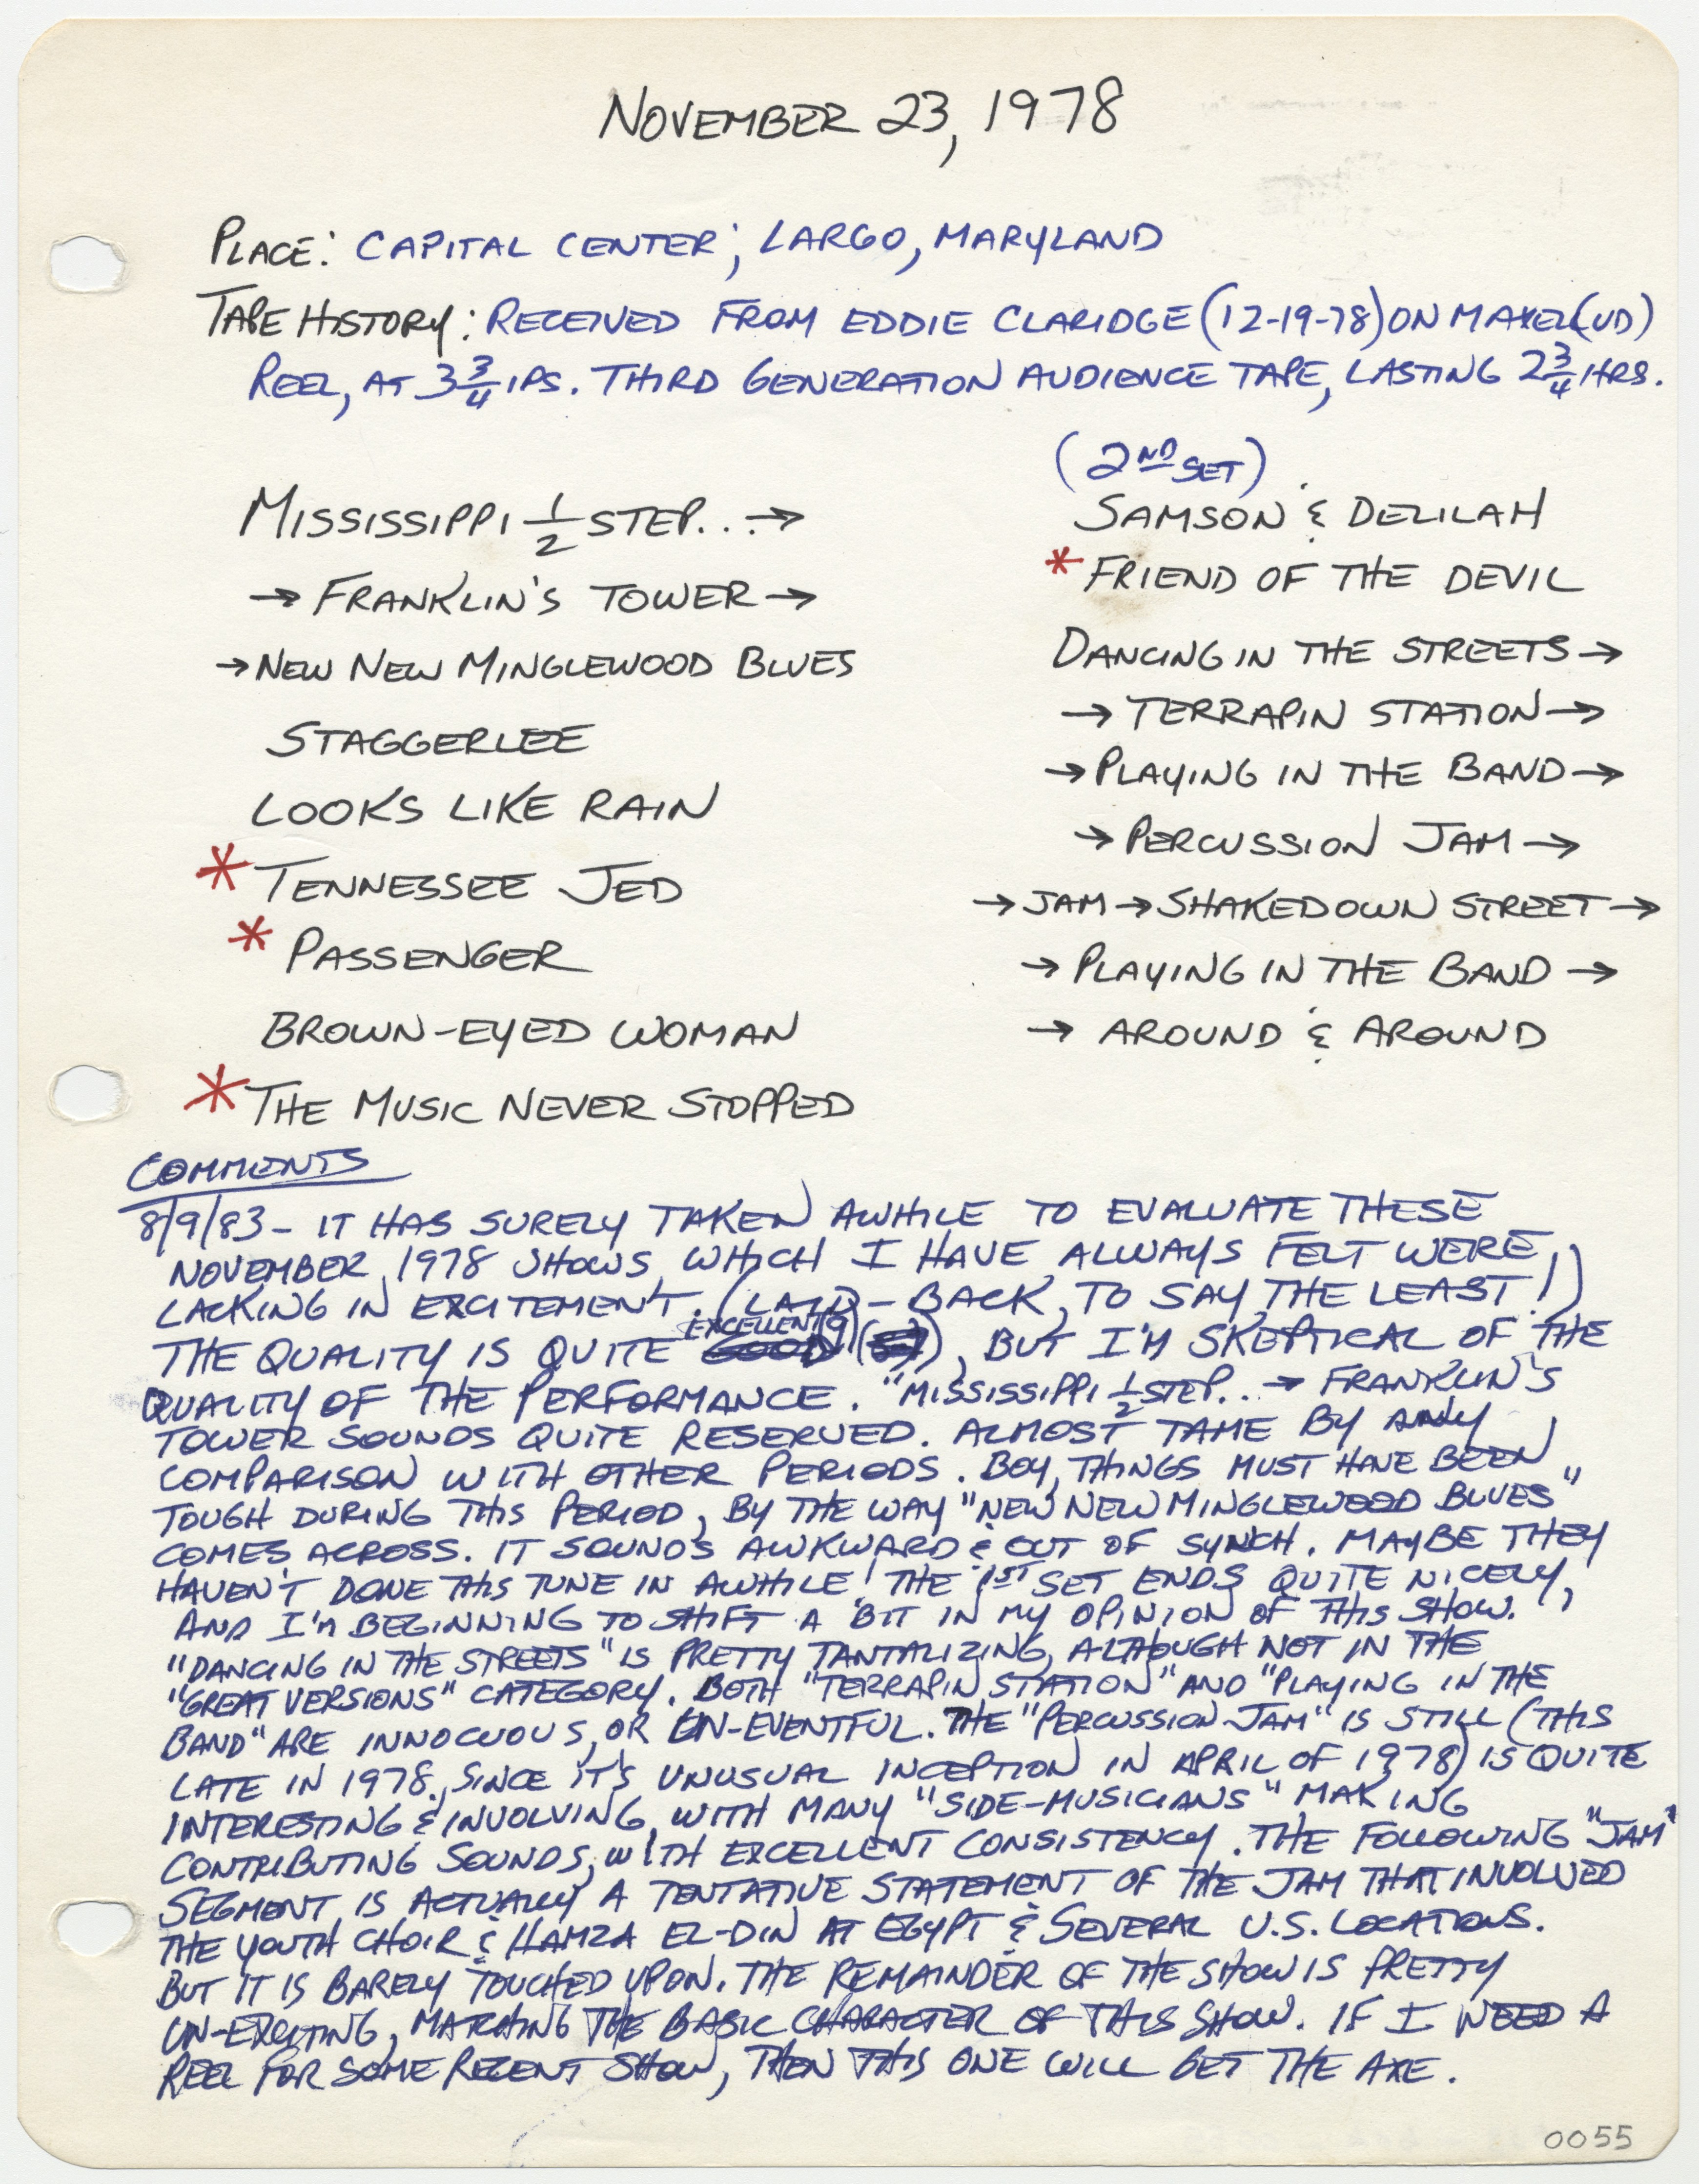 NOVEMBER 23, 1978
PLACE: CAPITAL CENTER; LARGO, MARYLAND
TAPE HISTORY: RECEIVED FROM EDDIE CLARIDGE (12-19-78) ON MAXELL (UD)
REEL, AT 3 3/4 IPS. THIRD GENERATION AUDIENCE TAPE, LASTING 2 3/4 HRS.
MISSISSIPPI 1/2 STEP... →
→ FRANKLIN'S TOWER →
→ NEW NEW MINGLEWOOD BLUES
STAGGERLEE
LOOKS LIKE RAIN
* TENNESSEE JED
* PASSENGER
BROWN-EYED WOMAN
* THE MUSIC NEVER STOPPED
(2ND SET)
SAMSON & DELILAH
* FRIEND OF THE DEVIL
DANCING IN THE STREETS →
→ TERRAPIN STATION →
→ PLAYING IN THE BAND →
→ PERCUSSION JAM →
→ JAM → SHAKEDOWN STREET →
→ PLAYING IN THE BAND →
→ AROUND & AROUND
COMMENTS
8/9/83 - IT HAS SURELY TAKEN AWHILE TO EVALUATE THESE
NOVEMBER, 1978 SHOWS, WHICH I HAVE ALWAYS FELT WERE
LACKING IN EXCITEMENT. (LAID-BACK, TO SAY THE LEAST!)
THE QUALITY IS QUITE EXCELLENT (9), BUT I'M SKEPTICAL OF THE
QUALITY OF THE PERFORMANCE. "MISSISSIPPI 1/2 STEP... → FRANKLIN'S
TOWER SOUNDS QUITE RESERVED. ALMOST TAME BY ANY
COMPARISON WITH OTHER PERIODS. BOY, THINGS MUST HAVE BEEN
TOUGH DURING THIS PERIOD, BY THE WAY "NEW NEW MINGLEWOOD BLUES"
COMES ACROSS. IT SOUNDS AWKWARD & OUT OF SYNCH. MAYBE THEY
HAVEN'T DONE THIS TUNE IN AWHILE! THE 1ST SET ENDS QUITE NICELY,
AND I'M BEGINNING TO SHIFT A BIT IN MY OPINION OF THIS SHOW.
"DANCING IN THE STREETS" IS PRETTY TANTALIZING, ALTHOUGH NOT IN THE
"GREAT VERSIONS" CATEGORY. BOTH "TERRAPIN STATION" AND "PLAYING IN THE
BAND" ARE INNOCUOUS, OR UN-EVENTFUL. THE "PERCUSSION JAM" IS STILL (THIS
LATE IN 1978, SINCE IT'S UNUSUAL INCEPTION IN APRIL OF 1978) IS QUITE
INTERESTING & INVOLVING, WITH MANY "SIDE-MUSICIANS" MAKING
CONTRIBUTING SOUNDS, WITH EXCELLENT CONSISTENCY. THE FOLLOWING "JAM"
SEGMENT IS ACTUALLY A TENTATIVE STATEMENT OF THE JAM THAT INVOLVED
THE YOUTH CHOIR & HAMZA EL-DIN AT EGYPT & SEVERAL U.S. LOCATIONS.
BUT IT IS BARELY TOUCHED UPON. THE REMAINDER OF THE SHOW IS PRETTY
UN-EXCITING, MATCHING THE BASIC CHARACTER OF THIS SHOW. IF I NEED A
REEL FOR SOME RECENT SHOW, THEN THIS ONE WILL GET THE AXE.
0055